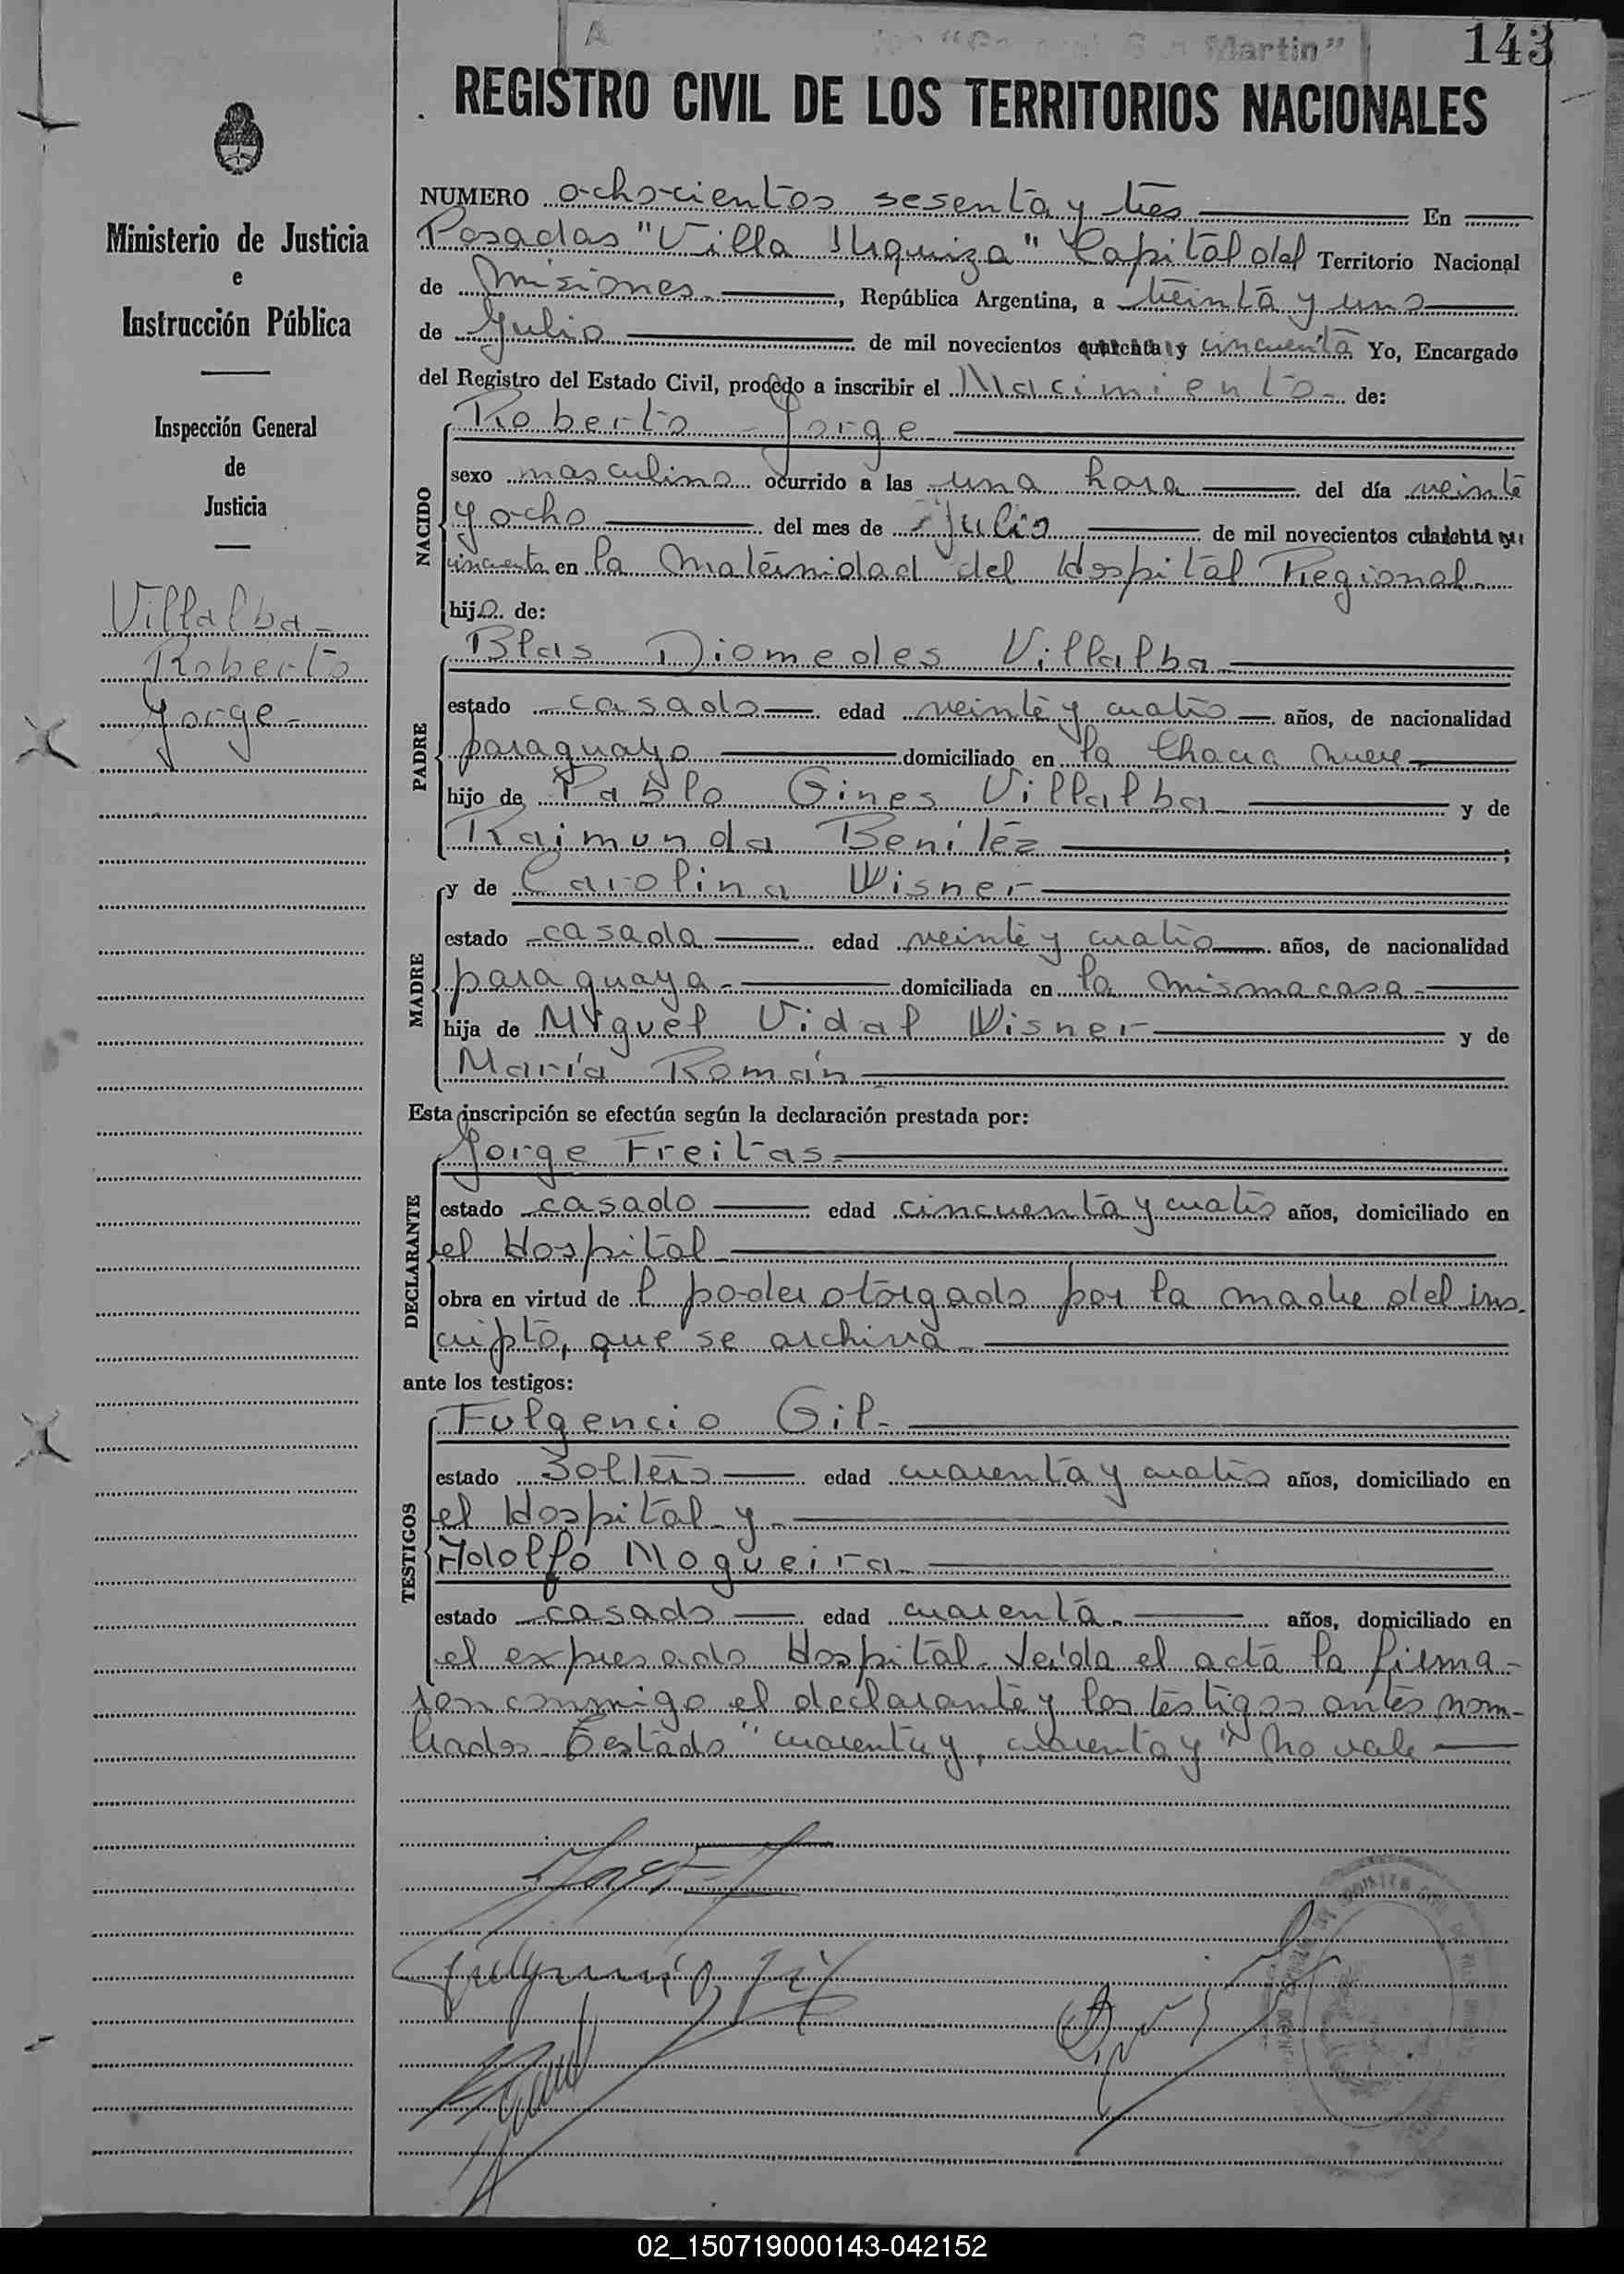 143
A
Martin"
REGISTRO CIVIL DE LOS TERRITORIOS NACIONALES
Ministerio de Justicia
e
Instrucción Pública
Inspección General
de
Justicia
Villalba
Roberto
Jorge
NUMERO ochocientos sesenta y tres En
Posadas "Villa Urquiza" Capital del Territorio Nacional
de Misiones, República Argentina, a treinta y uno
de Julio de mil novecientos cuarenta y cincuenta Yo, Encargado
del Registro del Estado Civil, procedo a inscribir el Nacimiento de:
NACIDO
Roberto Jorge
sexo masculino ocurrido a las una hora del día veinte
y ocho del mes de Julio de mil novecientos cuarenta y
cincuenta en la Maternidad del Hospital Regional
hijo de:
PADRE
Blas Diomedes Villalba
estado casado edad veinte y cuatro años, de nacionalidad
paraguayo domiciliado en la Chacra nueve
hijo de Pablo Gines Villalba y de
Raimunda Benítez ;
MADRE
y de Carolina Wisner
estado casada edad veinte y cuatro años, de nacionalidad
paraguaya domiciliada en la misma casa
hija de Miguel Vidal Wisner y de
María Román
Esta inscripción se efectúa según la declaración prestada por:
DECLARANTE
Jorge Freitas
estado casado edad cincuenta y cuatro años, domiciliado en
el Hospital
obra en virtud de l poder otorgado por la madre del ins-
cripto, que se archiva
ante los testigos:
TESTIGOS
Fulgencio Gil
estado Soltero edad cuarenta y cuatro años, domiciliado en
el Hospital y
Adolfo Nogueira
estado casado edad cuarenta años, domiciliado en
el expresado Hospital. Leída el acta la firma-
ron conmigo el declarante y los testigos antes nom-
brados. Testado "cuarenta y, cuarenta y" No vale
Fulgencio Gil
02_150719000143-042152